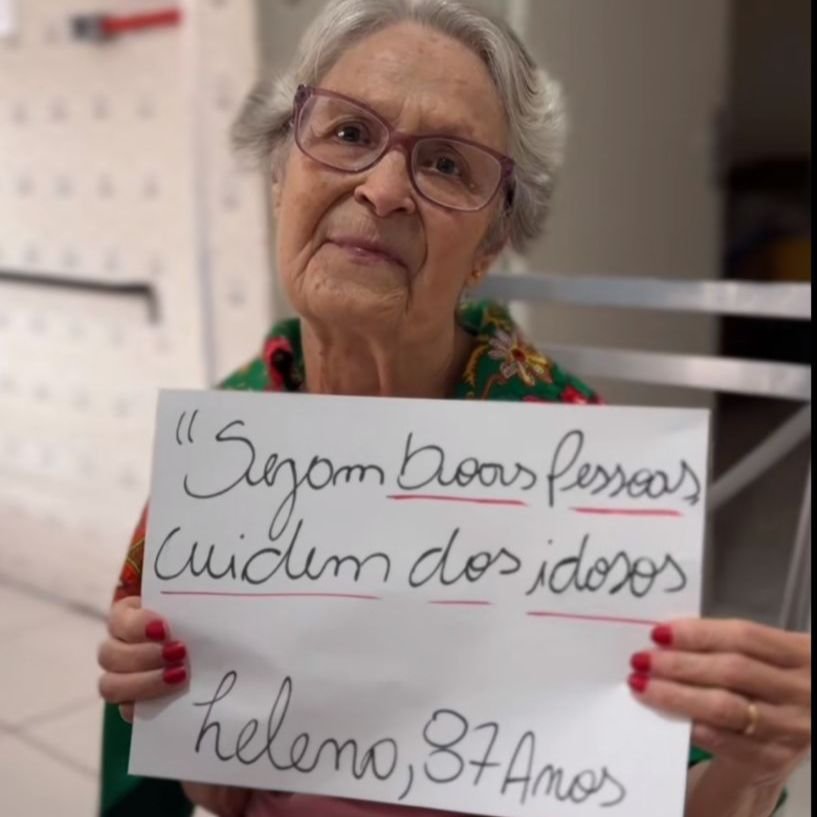 "Sejam boas Pessoas
cuidem dos idosos
helena, 87 Anos